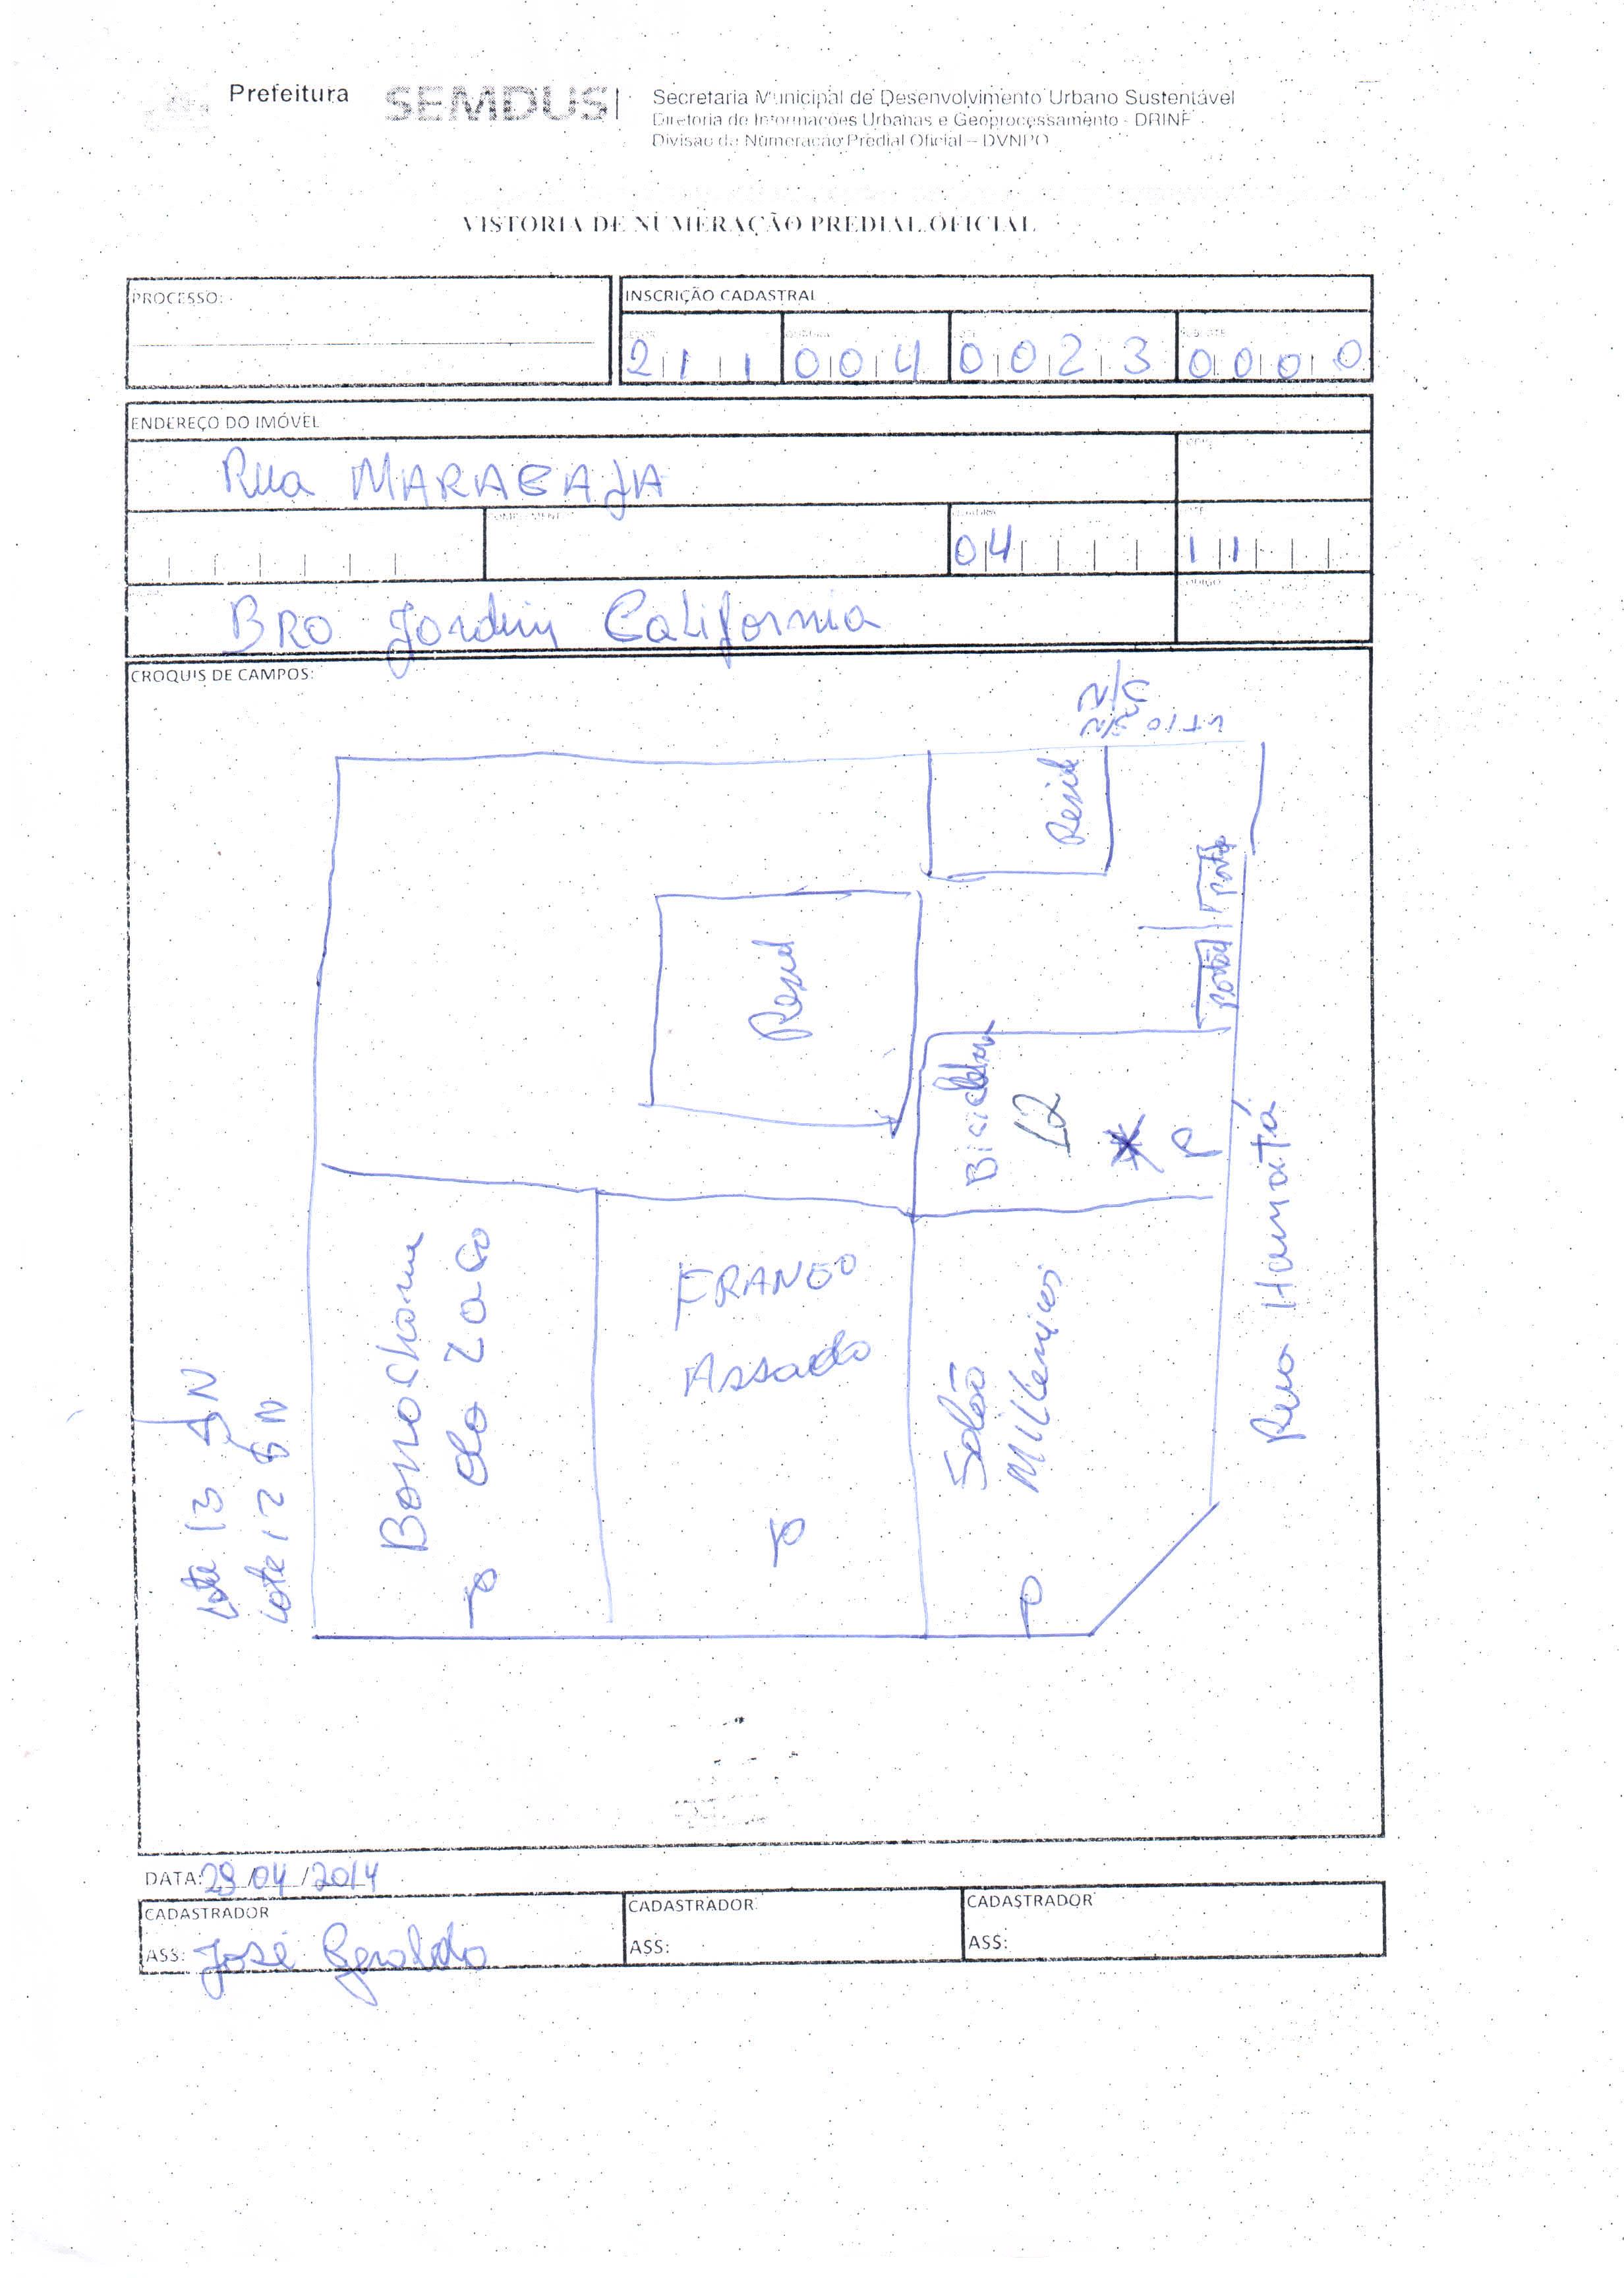 Prefeitura SEMDUS
Secretaria Municipal de Desenvolvimento Urbano Sustentável
Diretoria de Informações Urbanas e Geoprocessamento - DRINF
Divisão de Numeração Predial Oficial – DVNPO
VISTORIA DE NUMERAÇÃO PREDIAL OFICIAL
PROCESSO:
INSCRIÇÃO CADASTRAL
211 004 0023 0000
ENDEREÇO DO IMÓVEL
Rua MARACAJA
04 11
BRO Jardim California
CROQUIS DE CAMPOS:
S/N
LT 10 S/N
Resid
Resid
portão
portão
Bicicleta
L2
P
Rua Hamatá
Borracharia
do Zaco
FRANGO
Assado
Salão
Millenios
Lote 13 SN
Lote 12 SN
DATA: 29/04/2014
CADASTRADOR
ASS: José Geraldo
CADASTRADOR
ASS:
CADASTRADOR
ASS: